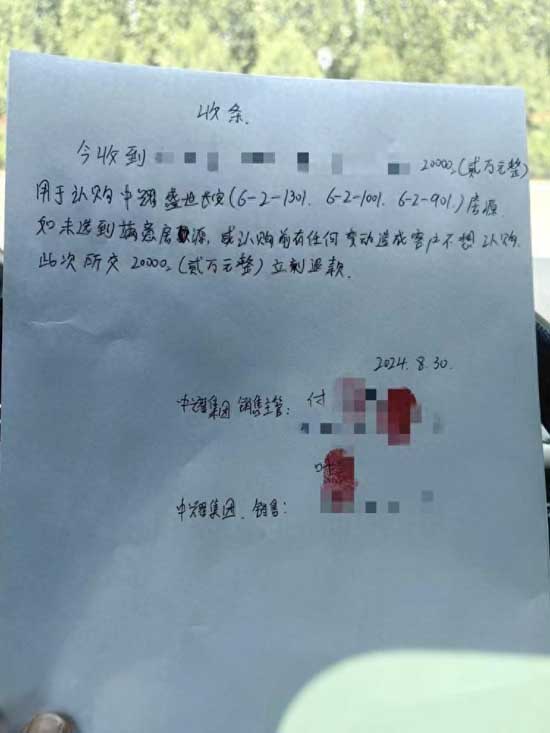 收条.
今收到 20000.(贰万元整)
用于认购中翔盛世长安(6-2-1301. 6-2-1001. 6-2-901.)房源
如未选到满意房源,或认购前有任何变动造成客户不想认购.
此次所交20000.(贰万元整)立刻退款.
2024.8.30.
集团销售主管: 付
叶
集团.销售: